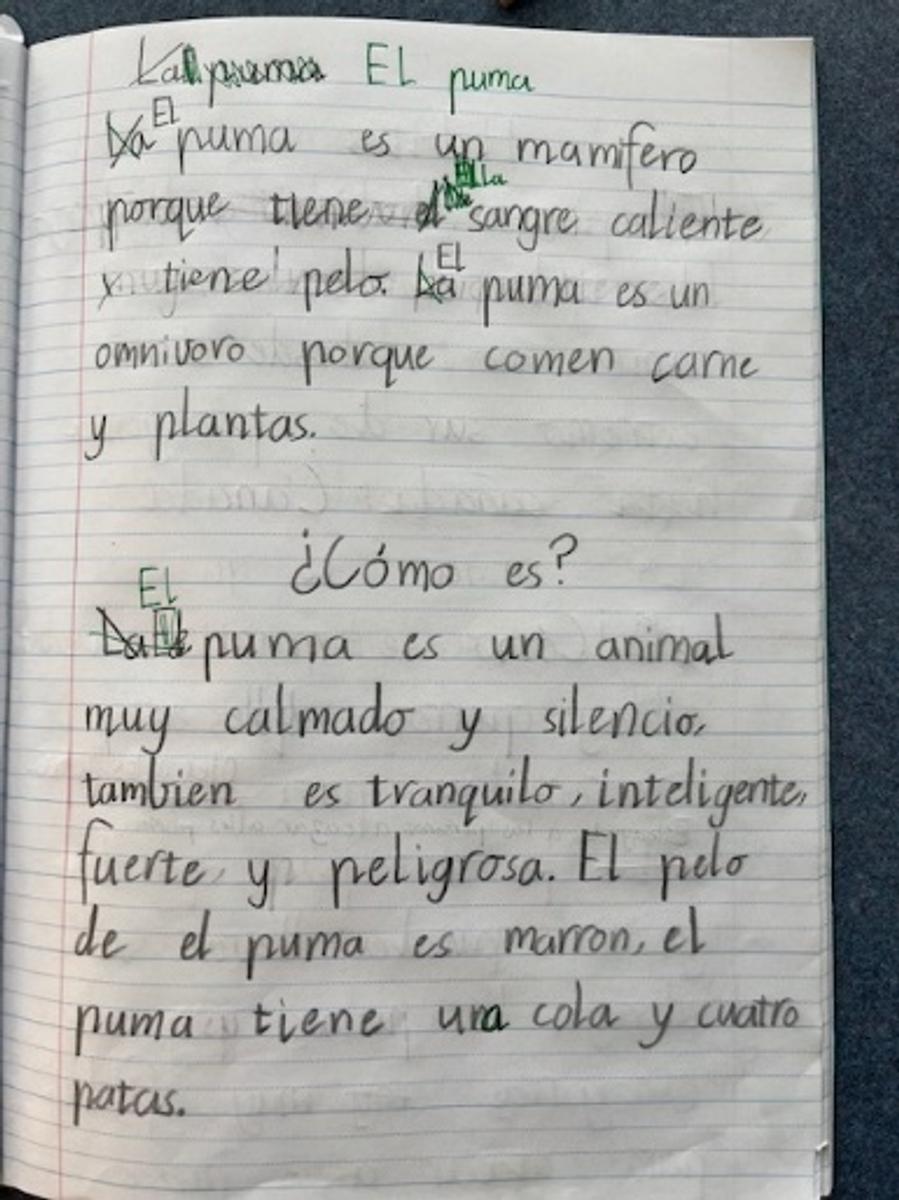 La puma EL puma
La El puma es un mamifero
porque tiene el La sangre caliente
y tiene pelo. La El puma es un
omnivoro porque comen carne
y plantas.
¿Cómo es?
El
La puma es un animal
muy calmado y silencio,
tambien es tranquilo, inteligente,
fuerte y peligrosa. El pelo
de el puma es marron, el
puma tiene una cola y cuatro
patas.